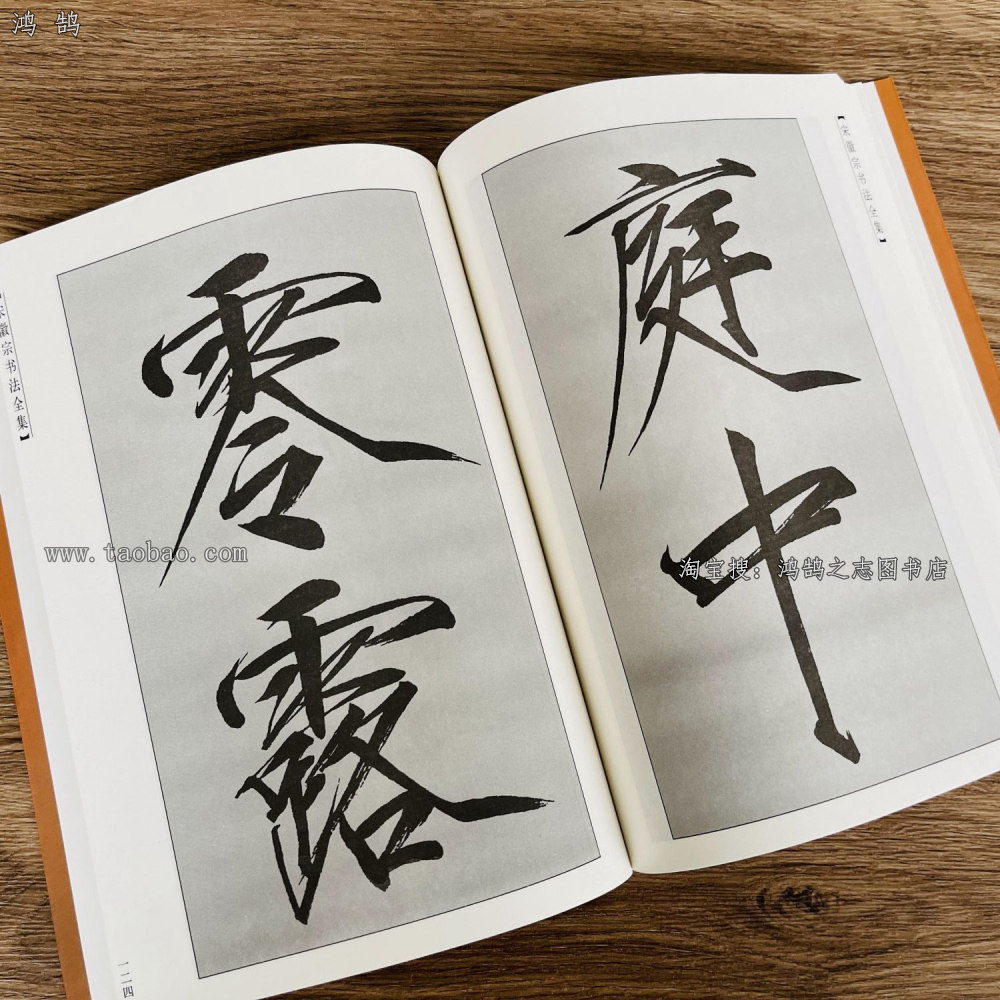 鸿鹄
【宋徽宗书法全集】
庭中
淘宝搜：鸿鹄之志图书店
【宋徽宗书法全集】
零露
www.taobao.com
一二四